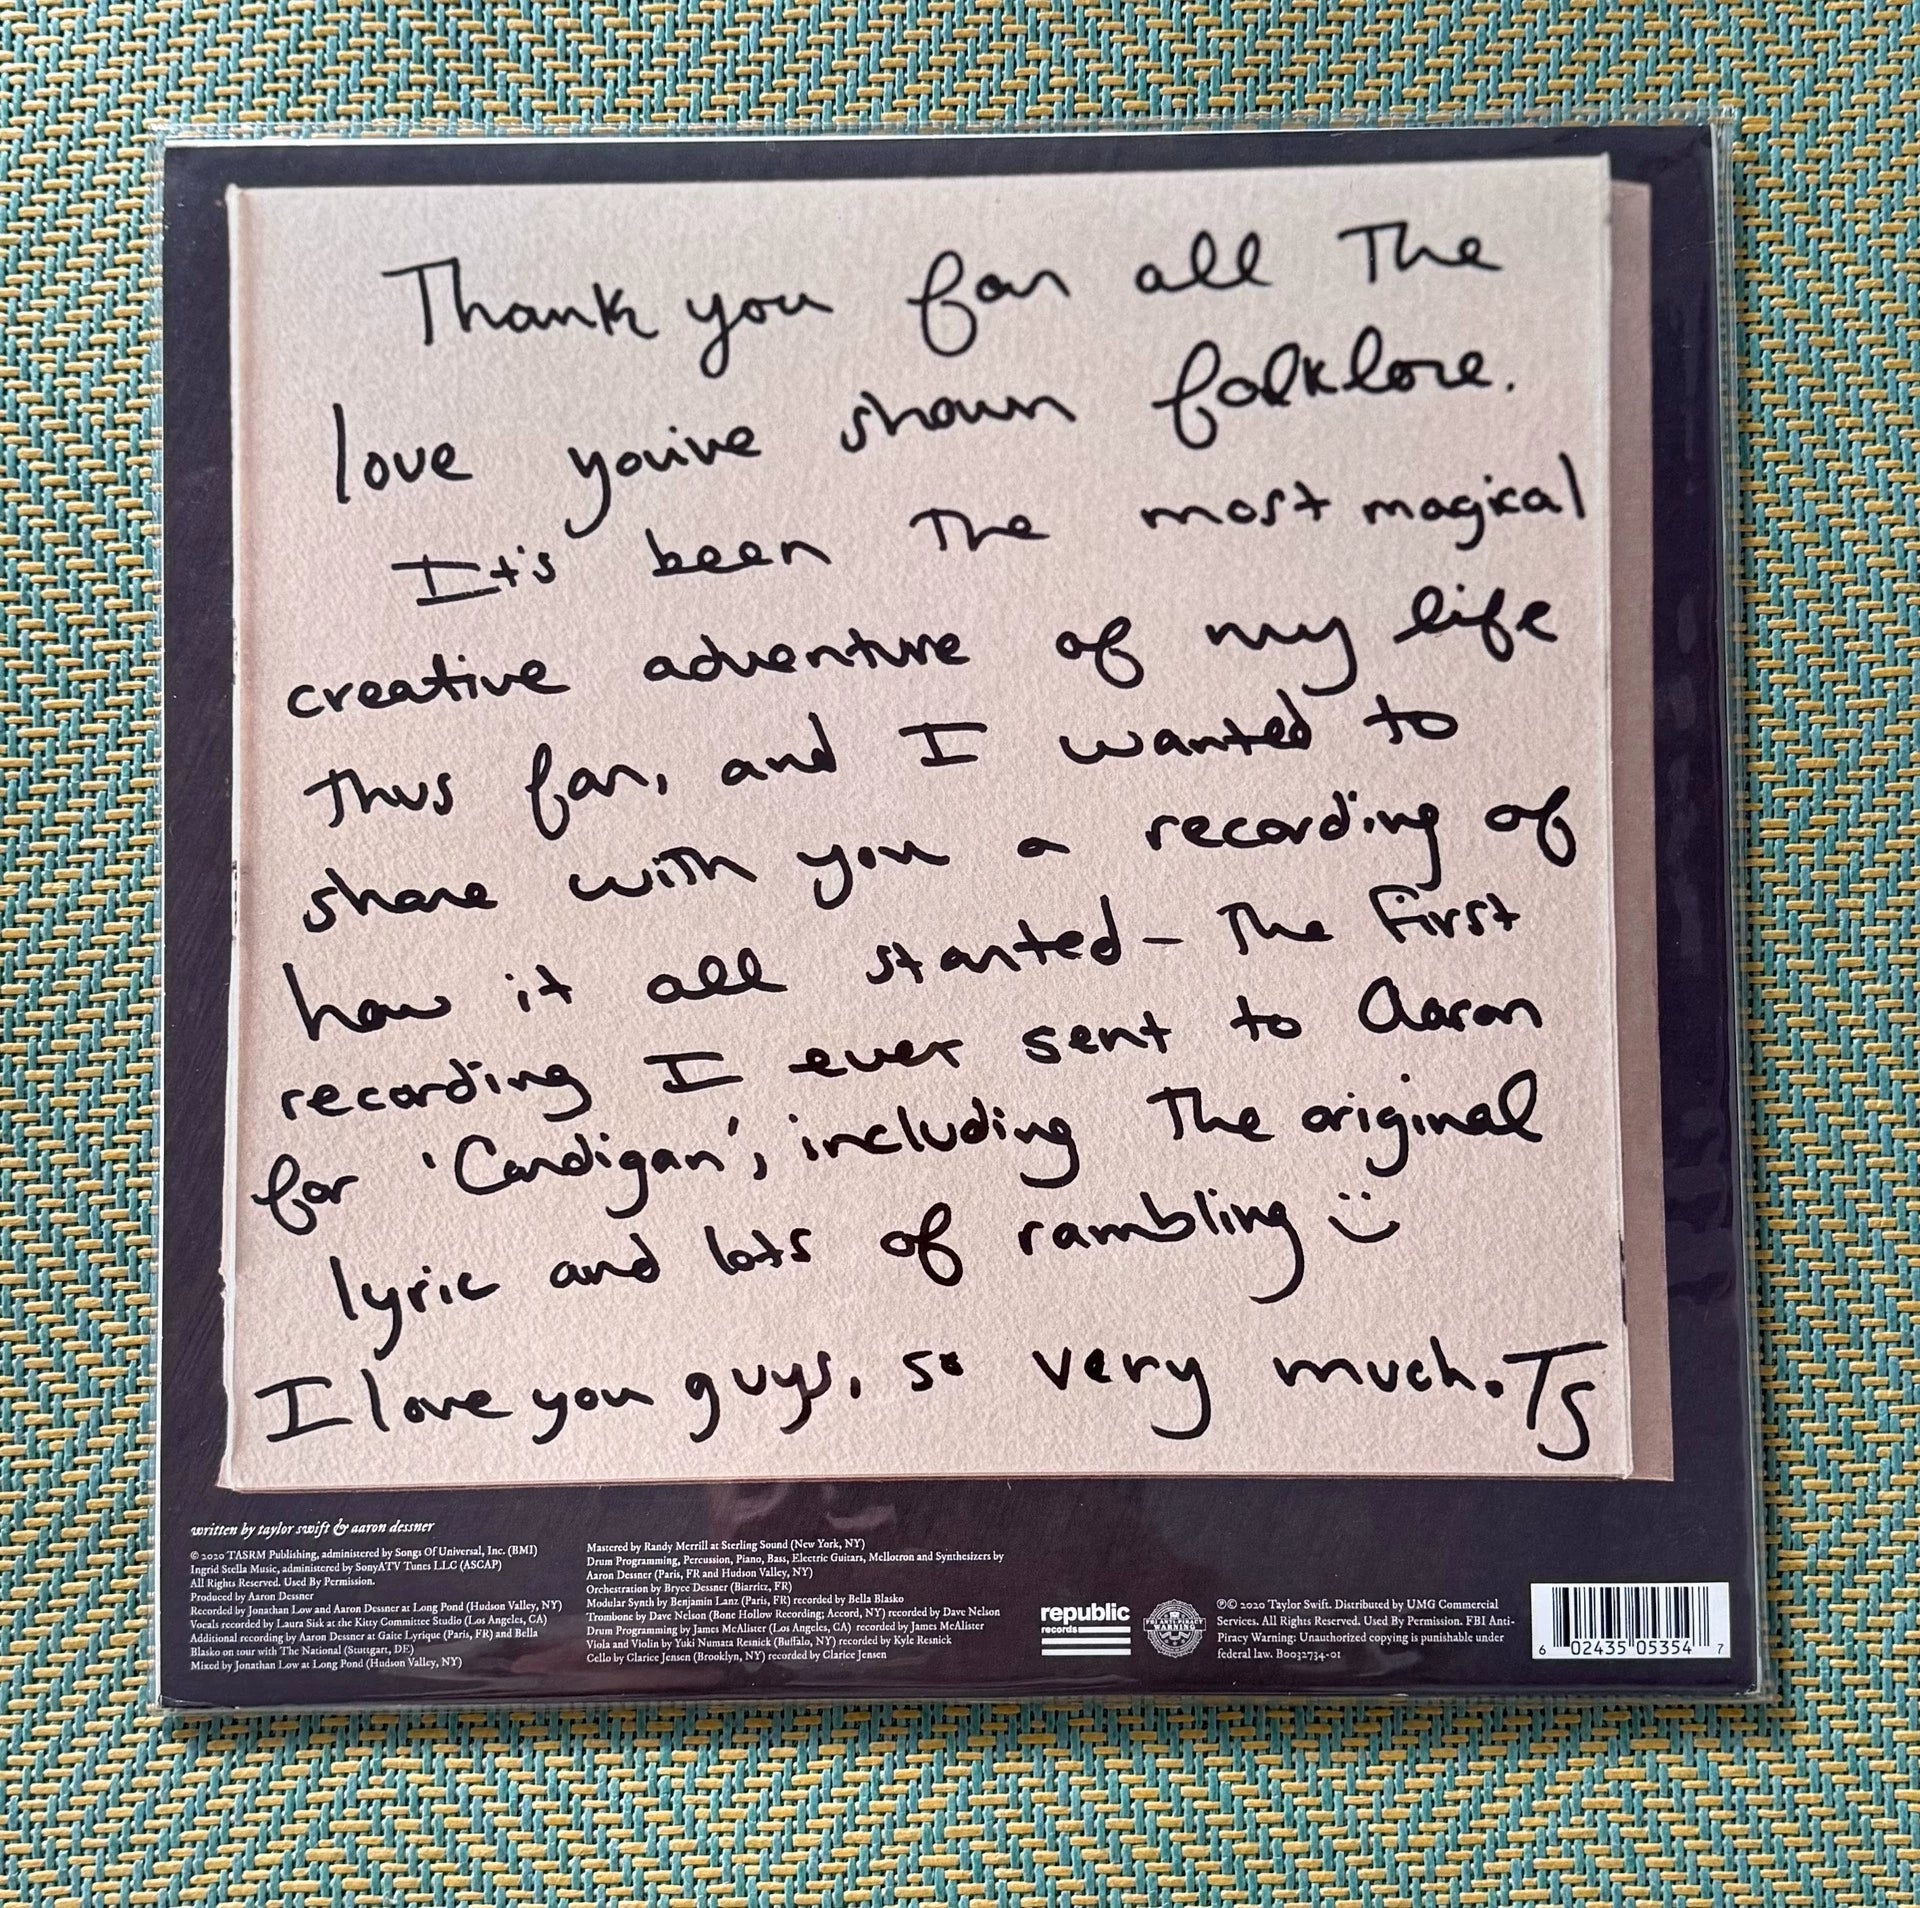 Thank you for all The
love you've shown folklore.
It's been The most magical
creative adventure of my life
thus far, and I wanted to
share with you a recording of
how it all started - The first
recording I ever sent to Aaron
for 'Cardigan', including The original
lyric and lots of rambling :)
I love you guys, so very much. TS
written by taylor swift & aaron dessner
© 2020 TASRM Publishing, administered by Songs Of Universal, Inc. (BMI)
Ingrid Stella Music, administered by SonyATV Tunes LLC (ASCAP)
All Rights Reserved. Used By Permission.
Produced by Aaron Dessner
Recorded by Jonathan Low and Aaron Dessner at Long Pond (Hudson Valley, NY)
Vocals recorded by Laura Sisk at the Kitty Committee Studio (Los Angeles, CA)
Additional recording by Aaron Dessner at Gaite Lyrique (Paris, FR) and Bella
Blasko on tour with The National (Stuttgart, DE)
Mixed by Jonathan Low at Long Pond (Hudson Valley, NY)
Mastered by Randy Merrill at Sterling Sound (New York, NY)
Drum Programming, Percussion, Piano, Bass, Electric Guitars, Mellotron and Synthesizers by
Aaron Dessner (Paris, FR and Hudson Valley, NY)
Orchestration by Bryce Dessner (Biarritz, FR)
Modular Synth by Benjamin Lanz (Paris, FR) recorded by Bella Blasko
Trombone by Dave Nelson (Bone Hollow Recording; Accord, NY) recorded by Dave Nelson
Drum Programming by James McAlister (Los Angeles, CA) recorded by James McAlister
Viola and Violin by Yuki Numata Resnick (Buffalo, NY) recorded by Kyle Resnick
Cello by Clarice Jensen (Brooklyn, NY) recorded by Clarice Jensen
republic
records
FBI ANTI-PIRACY
WARNING
℗© 2020 Taylor Swift. Distributed by UMG Commercial
Services. All Rights Reserved. Used By Permission. FBI Anti-
Piracy Warning: Unauthorized copying is punishable under
federal law. B0032734-01
6 02435 05354 7